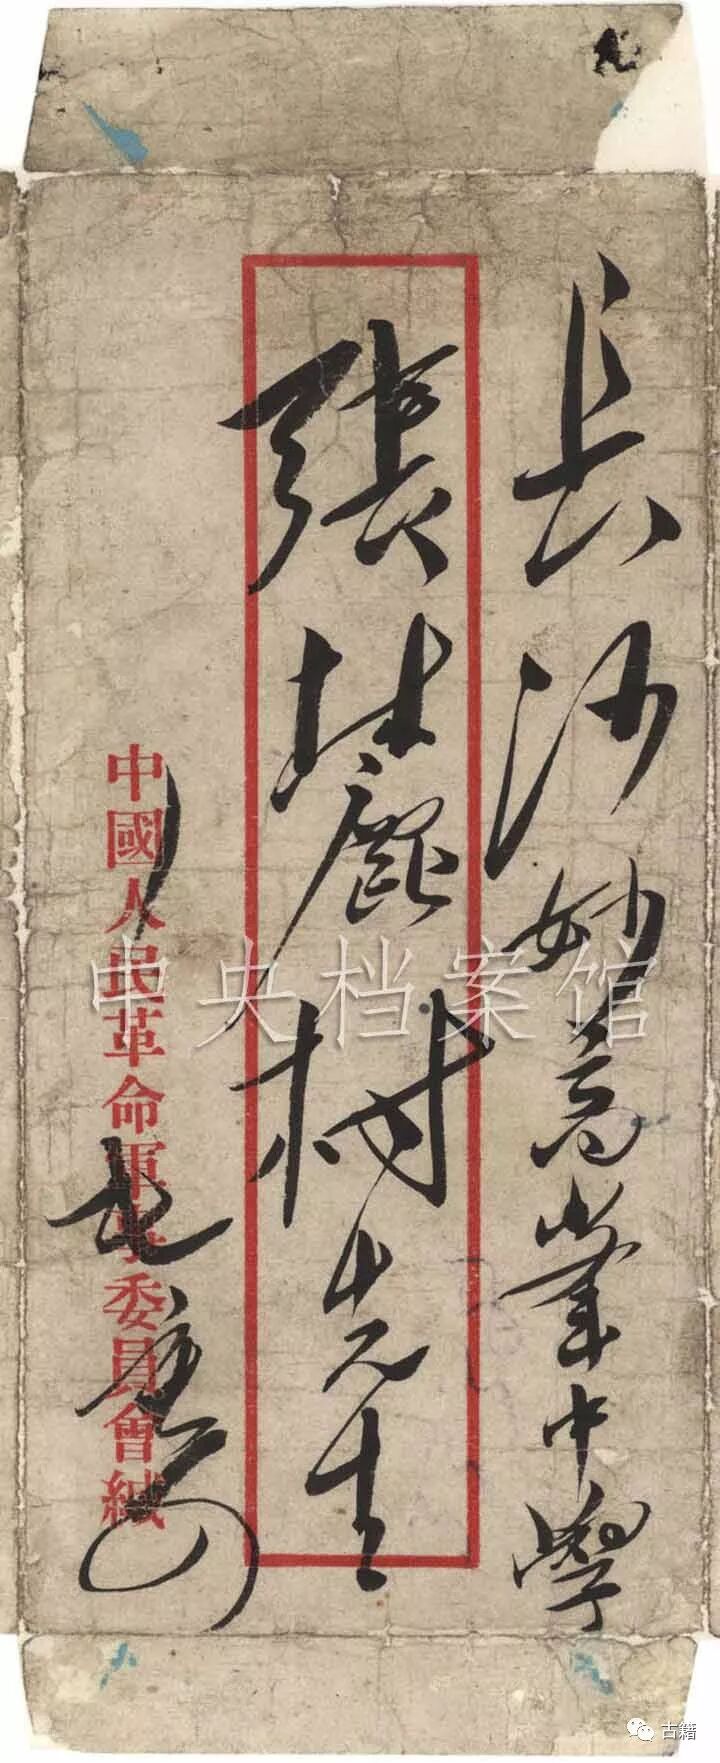 長沙妙高峯中學
張麓村先生
中國人民革命軍事委員會緘
中央档案馆
古籍